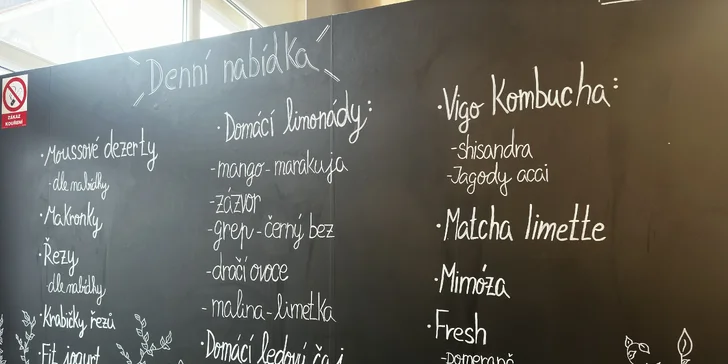 Denní nabídka
ZÁKAZ
KOUŘENÍ
·Moussové dezerty
-dle nabídky
·Makronky
·Řezy
-dle nabídky
·Krabičky řezů
Fit jogurt
·Domácí limonády:
-mango-marakuja
-zázvor
-grep-černý bez
-dračí ovoce
-malina-limetka
·Domácí ledový čaj
·Vigo Kombucha:
-shisandra
-Jagody acai
·Matcha limette
·Mimóza
·Fresh
-Pomeranč